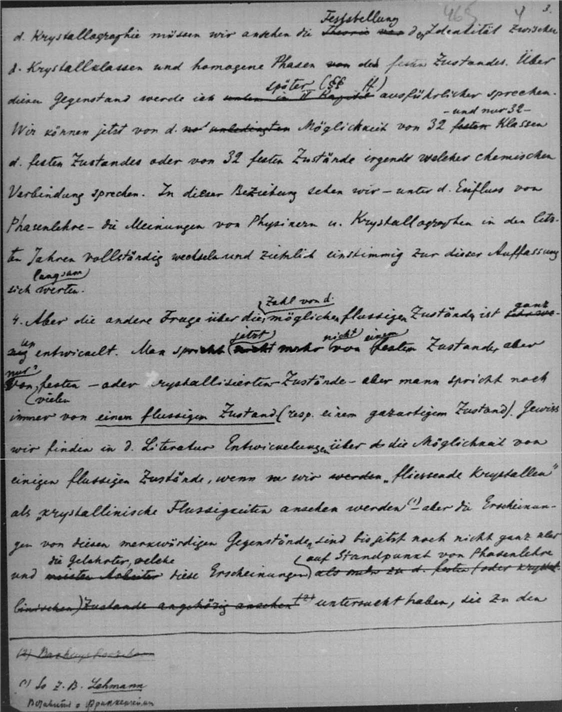 465 4 3.
Feststellung
d. Krystallographie müssen wir ansehen die Theorie von der Idealität zwischen
d. Krystallklassen und homogene Phasen von des festen Zustandes. Über
später (§§ )
diesen Gegenstand werde ich unten in ausführlicher sprechen.
– und nur 32 –
Wir können jetzt von d. unbedingten Möglichkeit von 32 festen Klassen
d. festen Zustandes oder von 32 festen Zustände irgend welcher chemischen
Verbindung sprechen. In dieser Beziehung sehen wir – unter d. Einfluss von
Phasenlehre – die Meinungen von Physikern u. Krystallographen in den letz-
ten Jahren vollständig wechseln und ziehlich einstimmig zur dieser Auffassung
langsam
sich werten.
Zahl von d.
4. Aber die andere Frage über die möglichen flussigen Zustände ist ganz
jetzt nicht einen
un entwickelt. Man spricht nicht mehr von festen Zustande, aber
nur
von festen – oder krystallisierten Zustände – aber mann spricht noch
vielen
immer von einem flussigen Zustand (resp. einem gazartigem Zustand). Gewiss
wir finden in d. Literatur Entwickelungen über die Möglichkeit von
einigen flussigen Zustände, wenn wir werden „fliessende Krystallen"
als „krystallinische Flussigkeiten ansehen werden (1) – aber die Erscheinun-
gen von diesen merkwürdigen Gegenstände sind bis jetzt noch nicht ganz klar
die Gelehrter, welche auf Standpunkt von Phasenlehre
und meisten Arbeiter diese Erscheinungen als mehr zu d. festen (oder krystal-
linischen) Zustande angehörig ansehen (2) untersucht haben, sie zu den
(2)
(1) So z. B. Lehmann